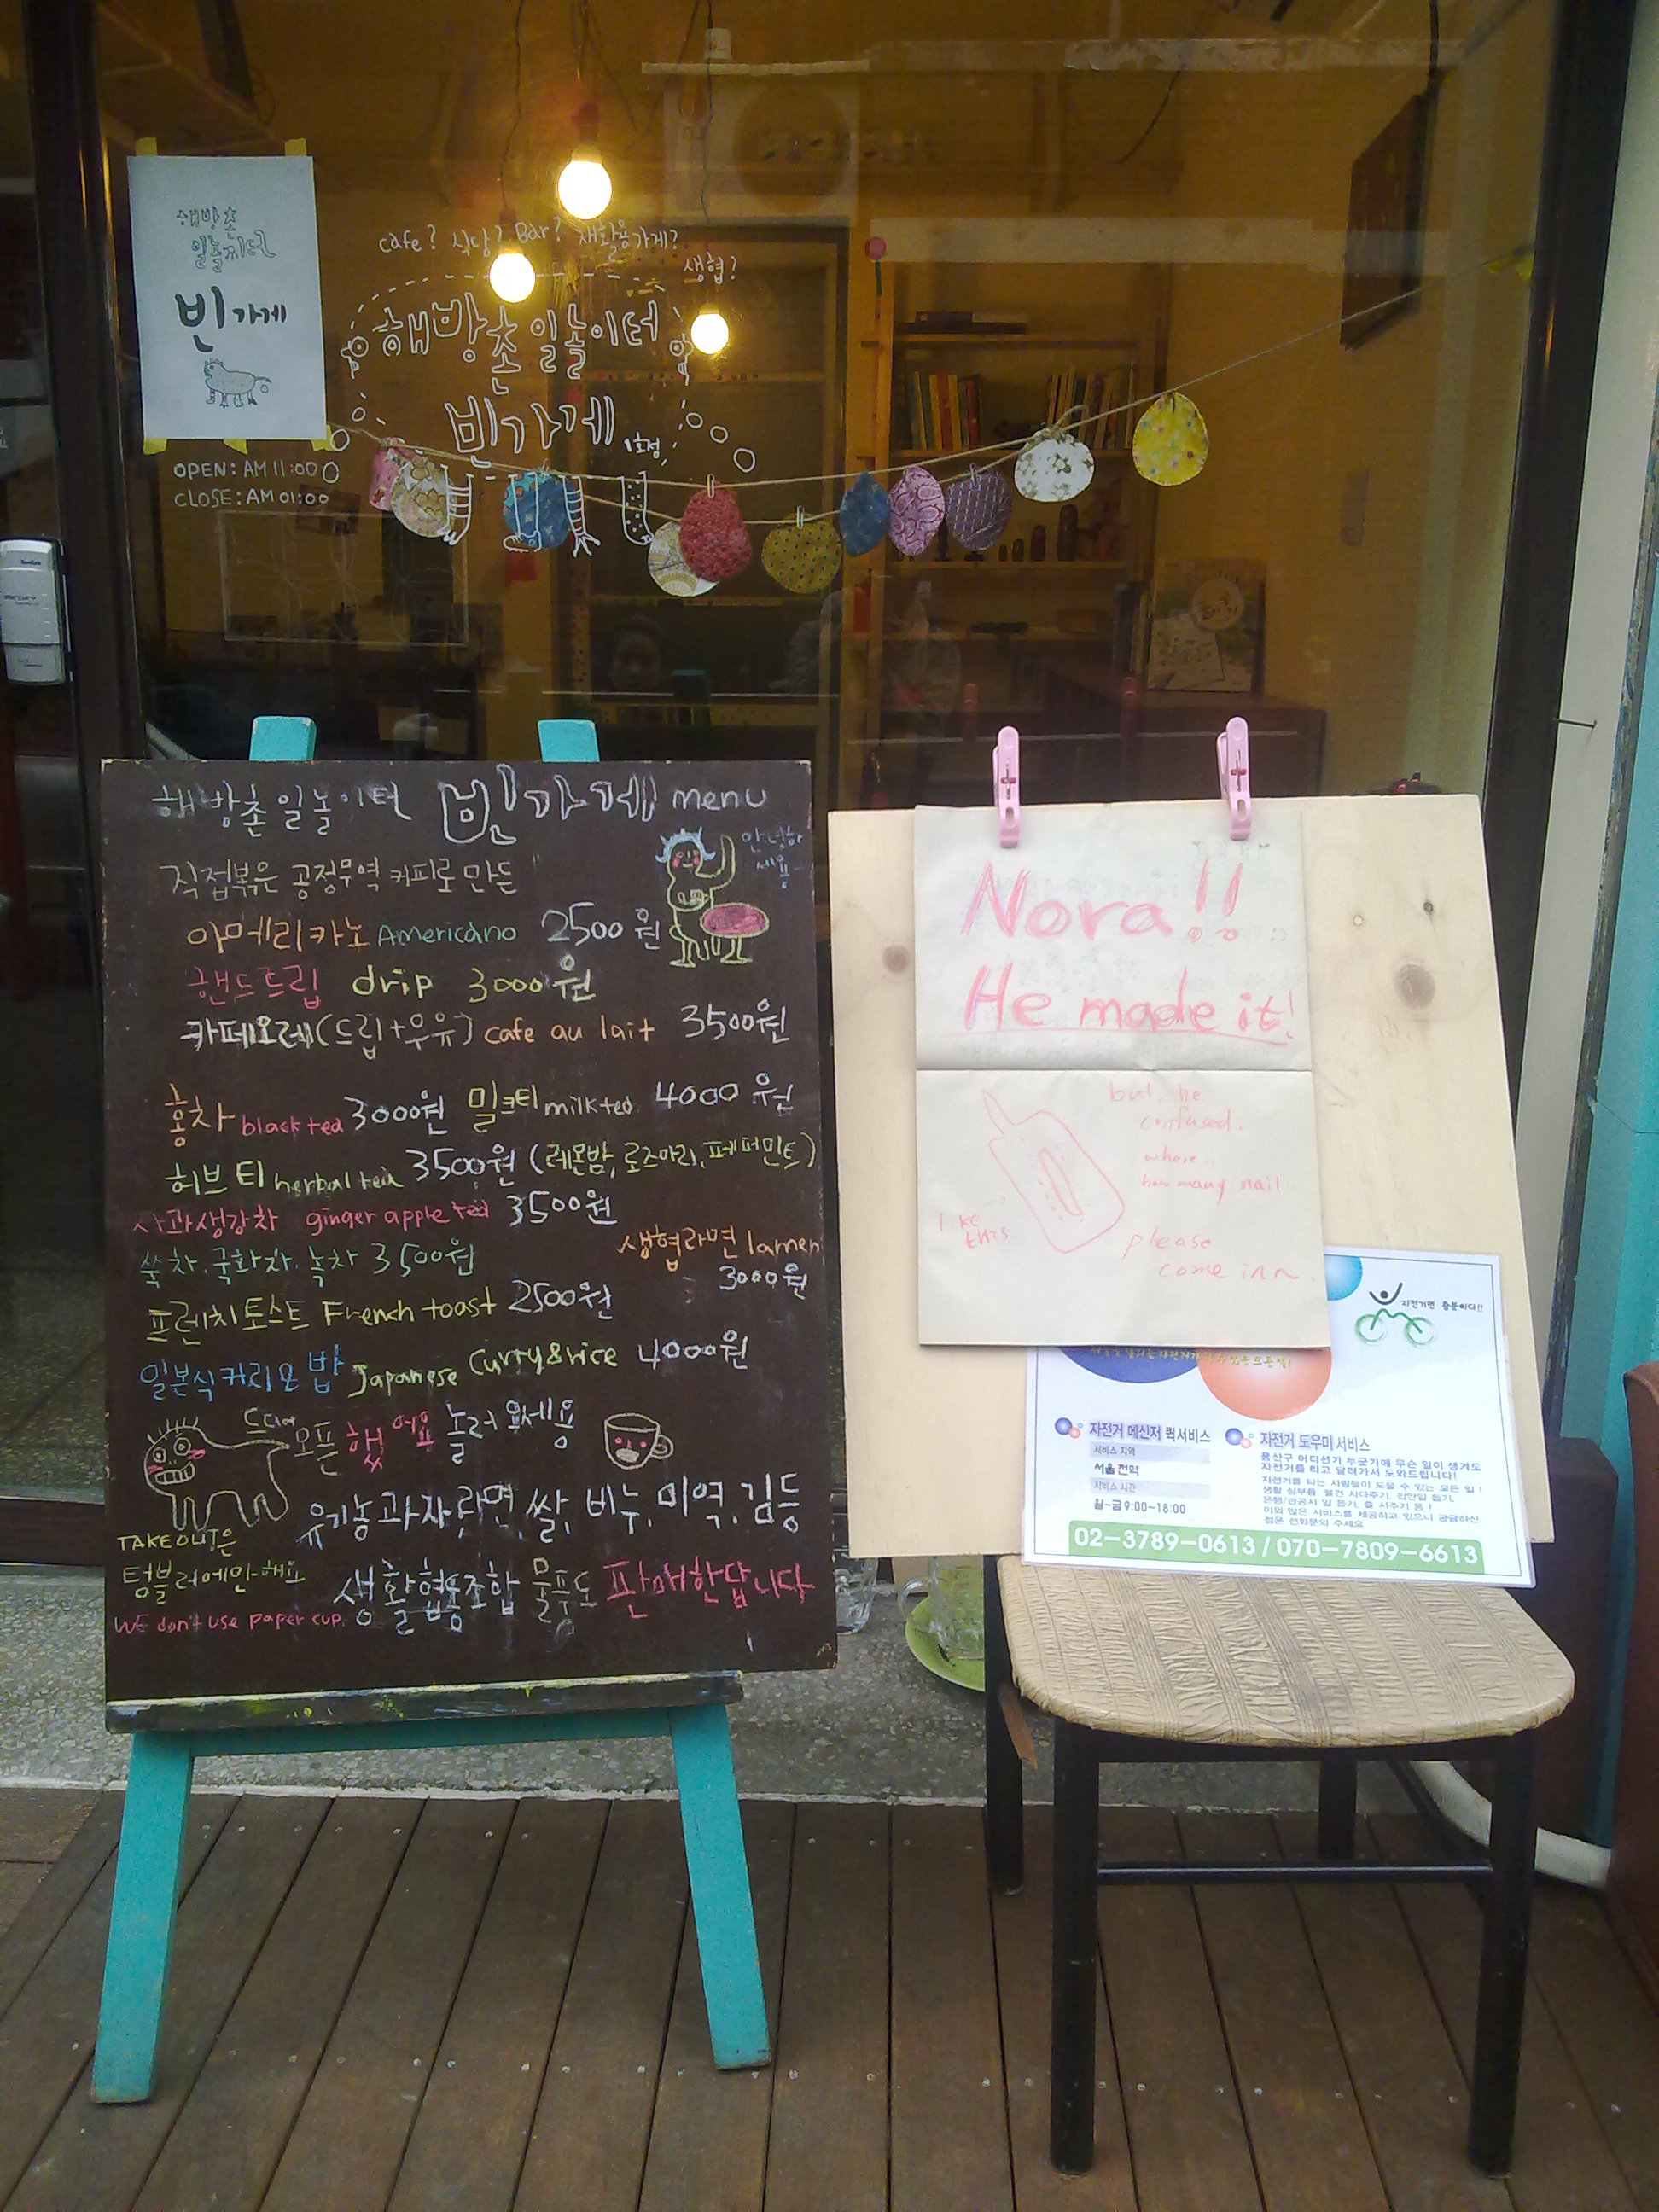 해방촌
일놀이터
빈가게
cafe? 식당? Bar? 재활용가게?
생협?
해방촌일놀이터
빈가게
1호점
OPEN: AM 11:00
CLOSE: AM 01:00
해방촌일놀이터 빈가게 menu
안녕하
세요
직접볶은 공정무역 커피로 만든
아메리카노 Americano 2500원
핸드드립 drip 3000원
카페오레(드립+우유) cafe au lait 3500원
홍차 black tea 3000원 밀크티 milk tea 4000원
허브티 herbal tea 3500원 (레몬밤, 로즈마리, 페퍼민트)
사과생강차 ginger apple tea 3500원
쑥차. 국화차. 녹차 3500원
생협라면 lamen
3000원
프렌치토스트 French toast 2500원
일본식커리오밥 Japanese Curry&rice 4000원
드디어 오픈 했어요 놀러오세용
유기농과자, 라면, 쌀, 비누, 미역, 김등
생활협동조합 물품도 판매한답니다
TAKE OUT은
텀블러에만 해요
WE don't use paper cup.
Nora!!
He made it!
but. he
confused.
where..
how many nail..
like
this
please
come inn
자전거면 충분하다!!
자전거 메신저 퀵서비스
서비스 지역
서울전역
서비스 시간
월~금 9:00~18:00
자전거 도우미 서비스
용산구 어디선가 누군가에 무슨 일이 생겨도
자전거를 타고 달려가서 도와드립니다!
자전거를 타는 사람들이 도울 수 있는 모든 일!
생활 심부름 물건 사다주기, 집안일 돕기,
은행/관공서 일 돕기, 줄 서주기 등!
이외 많은 서비스를 제공하고 있으니 궁금하신
점은 전화문의 주세요
02-3789-0613 / 070-7809-6613